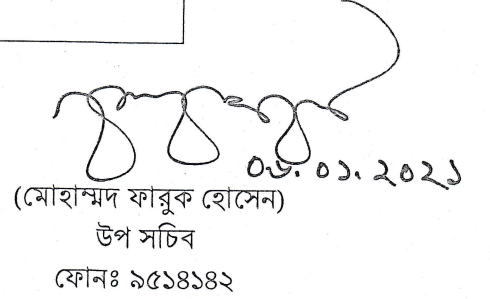 ০৬. ০১. ২০২১
(মোহাম্মদ ফারুক হোসেন)
উপ সচিব
ফোনঃ ৯৫১৪১৪২